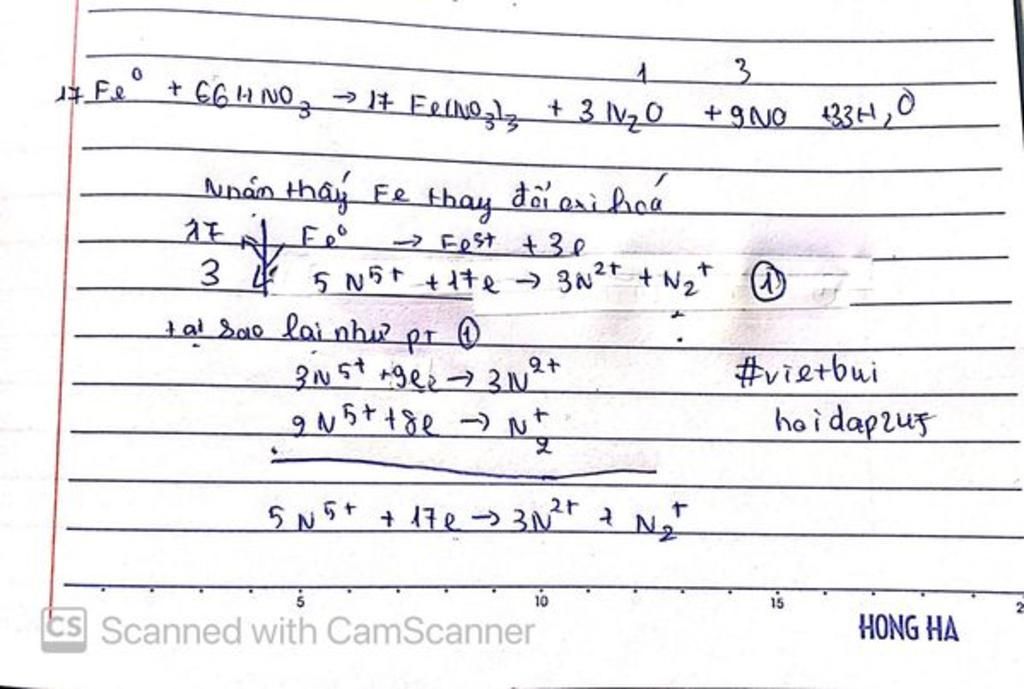 1 3
17 Fe⁰ + 66 HNO₃ → 17 Fe(NO₃)₃ + 3 N₂O + 9NO + 33H₂O
Nhán thấy Fe thay đổi oxi hoá
17 Fe⁰ → Fe³⁺ + 3e
3 5 N⁵⁺ + 17e → 3N²⁺ + N₂⁺ ①
tại sao lại như pt ①
3N⁵⁺ + 9e → 3N²⁺ #vietbui
2N⁵⁺ + 8e → N₂⁺ hoidap247
5 N⁵⁺ + 17e → 3N²⁺ + N₂⁺
5 10 15 2
CS Scanned with CamScanner
HONG HA